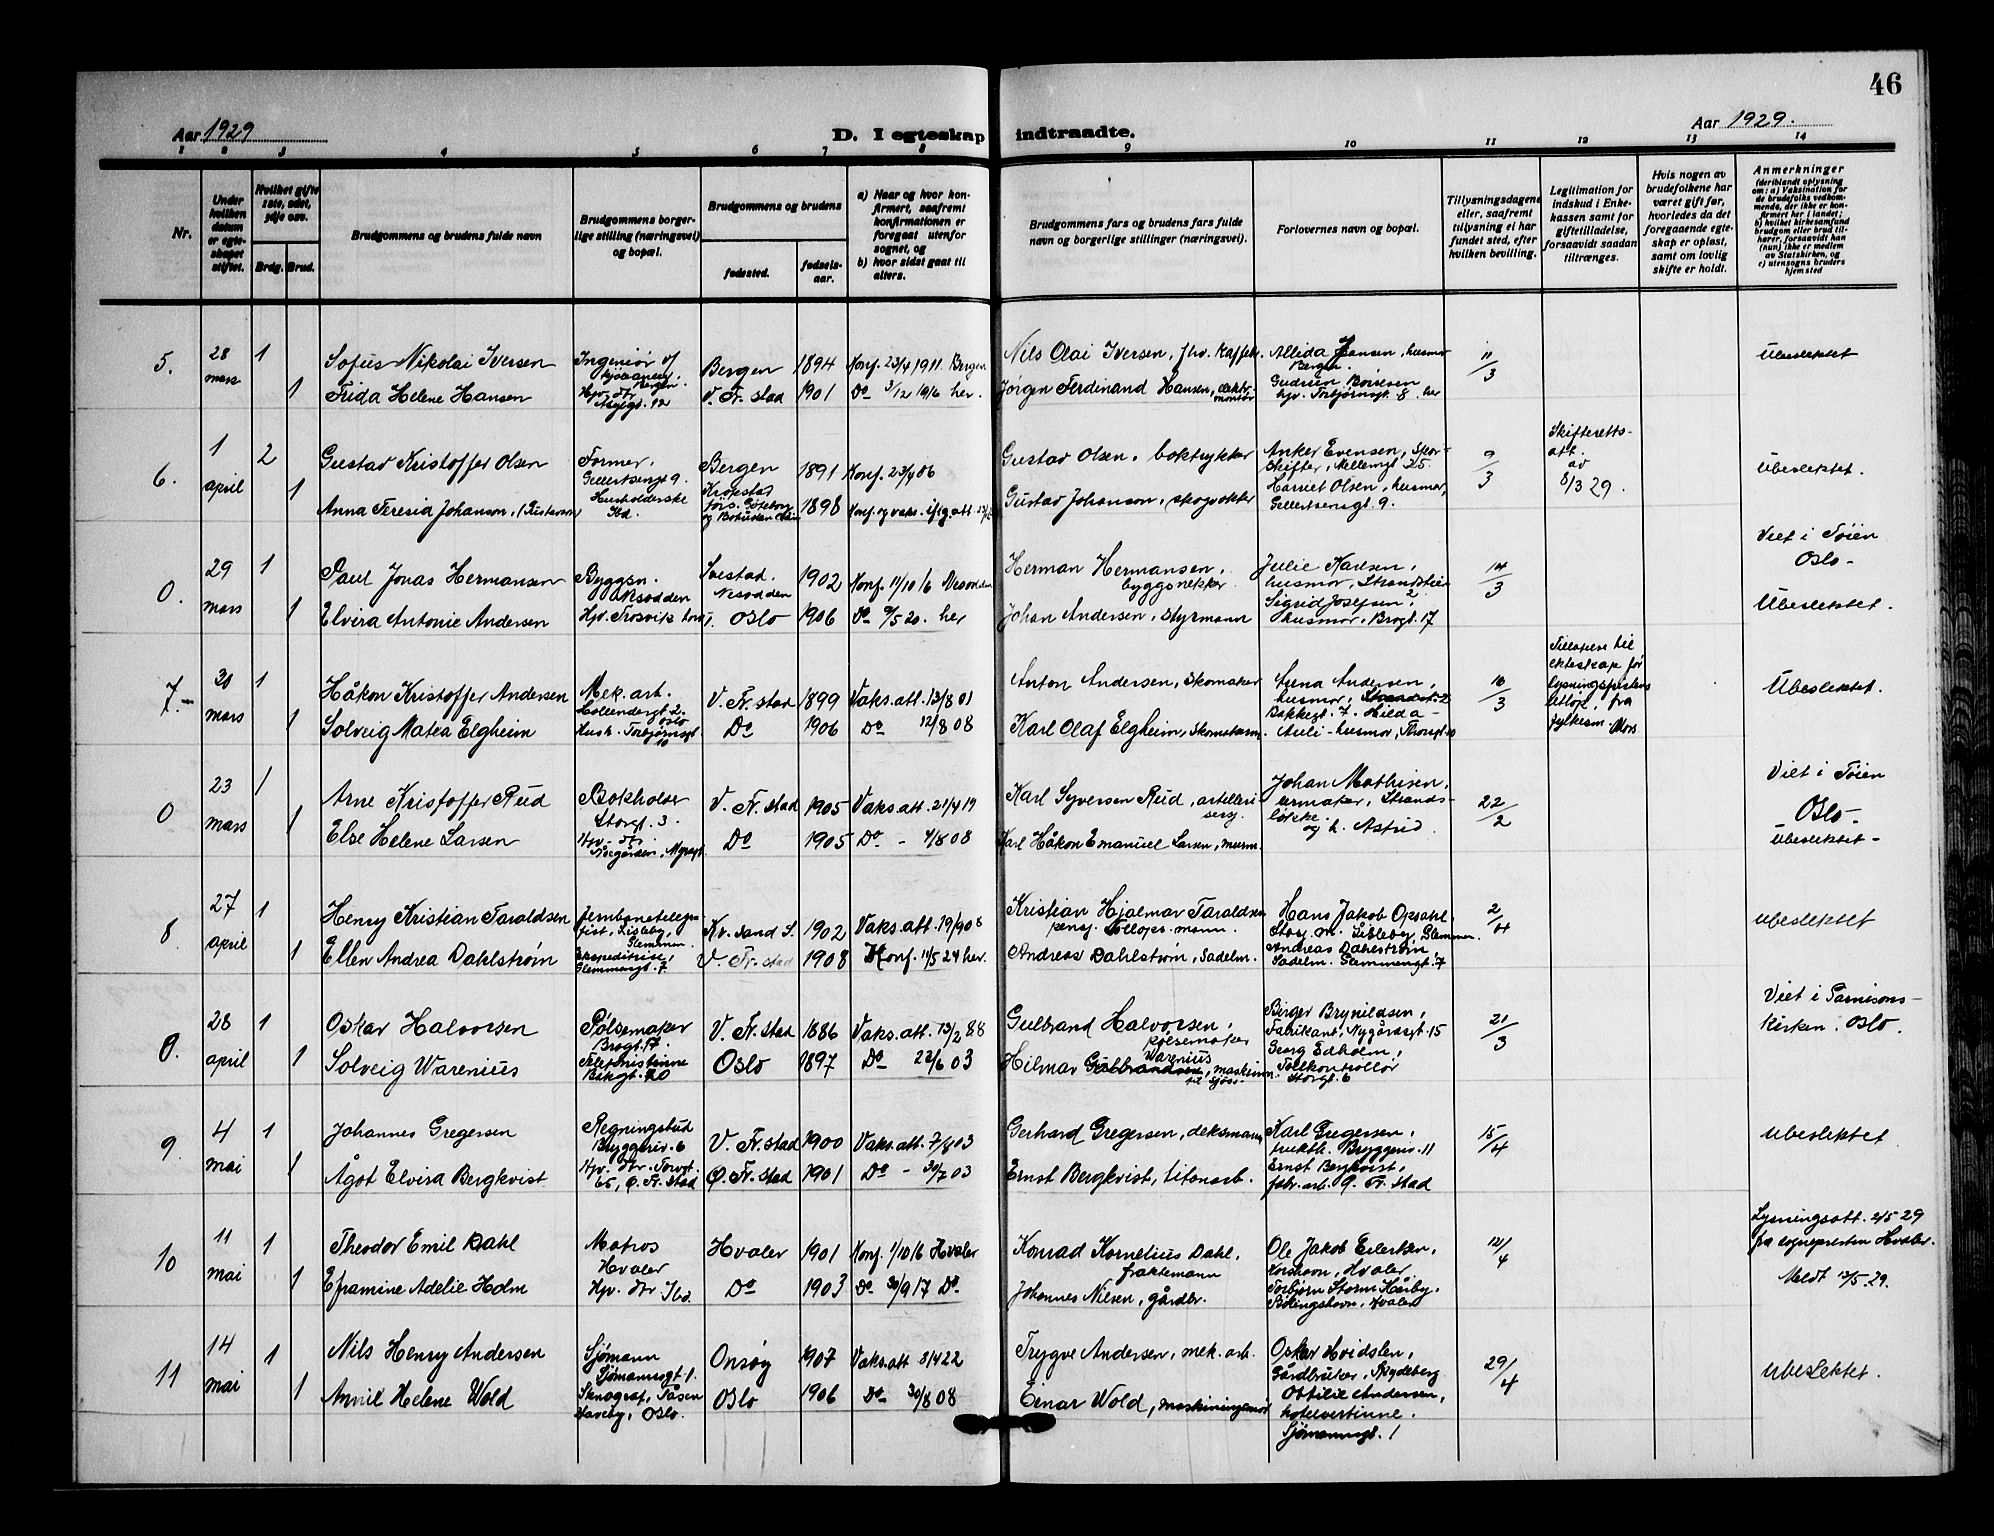 46
Aar 1929
D. I egteskap indtraadte.
Aar 1929.
1 2 3 4 5 6 7 8 9 10 11 12 13 14
Nr.
Under hvilken datum er egteskapet stiftet.
Hvilket gifte 1ste, 2det, 3dje osv.
Brdg. Brud.
Brudgommens og brudens fulde navn
Brudgommens borgerlige stilling (næringsvei) og bopæl.
Brudgommens og brudens
fødested.
fødselsaar.
a) Naar og hvor konfirmert, saafremt konfirmationen er foregaat utenfor sognet, og
b) hvor sidst gaat til alters.
Brudgommens fars og brudens fars fulde navn og borgerlige stillinger (næringsvei).
Forlovernes navn og bopæl.
Tillysningsdagene eller, saafremt tillysning ei har fundet sted, efter hvilken bevilling.
Legitimation for indskud i Enkekassen samt for giftetilladelse, forsaavidt saadan tiltrænges.
Hvis nogen av brudefolkene har været gift før, hvorledes da det foregaaende egteskap er opløst, samt om lovlig skifte er holdt.
Anmerkninger
(deriblandt oplysning om: a) Vaksination for de brudefolks vedkommende, der ikke er konfirmert her i landet; b) hvilket kirkesamfund brudgom eller brud tilhører, forsaavidt han (hun) ikke er medlem av Statskirken, og c) utensogns bruders hjemsted
5. 28 mars 1 Sofus Nikolai Iversen Ingeniør Bergen. Bergen 1894 Konf. 23/4 1911 Bergen Nils Olai Iversen, fhv. Allida Jansen, husmor Bergen. 11/3 Ubeslektet
1 Frida Helene Hansen Hjv. dtr. Asylgt. 12 V. Fr.stad 1901 Do 3/12 1916 her. Jørgen Ferdinand Hansen, elektr. montør Gudrun Boiesen hjv. Torbjørnsgt. 8. her
6. 1 april 2 Gustav Kristoffer Olsen Former, Gellertsengt 9. Bergen 1891 Konf. 23/4 06 Gustav Olsen, boktrykker Anker Evensen, Sporskifter, Mellemgt 25. 9/3 Skifteretts-att. av 8/3 29. Ubeslektet.
1 Anna Teresia Johanson, Husholderske Ibd. Krokstad Göteborg og Bohuslän 1898 Konf. og vaks. Gustav Johanson, skogvokter Harriet Olsen, husmor, Gellertsensgt. 9.
0. 29 mars 1 Paul Jonas Hermansen Byggsn. Nesodden Nesodden 1902 Konf. 11/10 16 Nesodden Herman Hermansen, byggsnekker Julie Karlsen, husmor, 14/3 Viet i Tøien Oslo -
1 Elvira Antonie Andersen Hjv. Trosvik Oslo 1906 Do 9/5 20. her Johan Andersen, styrmann Sigrid Josefsen, husmor, Brogt. 17 Ubeslektet.
7.- 30 mars 1 Håkon Kristoffer Andersen Mek. arb. Hollendergt 2. Oslo V. Fr. stad 1899 Vaks. att. 13/8 01 Anton Andersen, Skomaker Anna Andersen, husmor, Bakkegt. 7. 10/3 Tillatelse til ekteskap før lysningsfristens utløp, fra fylkesm. Moss Ubeslektet.
1 Solveig Matea Elgheim Hush. Torbjørnsgt. 10 Do 1906 Do 12/8 08 Karl Olaf Elgheim, Skomakerm. Hilda husmor,
0 23 mars 1 Arne Kristoffer Rud Bokholder Storgt. 3. V. Fr. stad 1905 Vaks. att. 21/4 19 Karl Syversen Rud, artillerisersj. Johan Mathisen, urmaker, Strandsløkke. og h. Astrid. 22/2 Viet i Tøien Oslo -
1 Else Helene Larsen Hjv. dtr. Myragt. Do 1905 Do - 4/8 08 Karl Håkon Emanuel Larsen, murm. Ubeslektet -
8. 27 april 1 Henry Kristian Taraldsen Jernbanetelegrafist, Lisleby, Glemmen Kr. sand S. 1902 Vaks. att. 19/9 08 Kristian Hjalmar Taraldsen pensj. Hans Jakob Opsahl, Lisleby, Glemmen. 2/4 Ubeslektet
1 Ellen Andrea Dahlstrøm Ekspeditrise, Glemmengt. 7 V. Fr. stad 1908 Konf. 11/5 24 her. Andreas Dahlstrøm, Sadelm. Andreas Dahlstrøm Sadelm. Glemmengt. 7
0. 28 april 1 Oskar Halvorsen Pølsemaker Brogt. 17. V. Fr. stad 1886 Vaks. att. 13/2 88 Gulbrand Halvorsen, pølsemaker Birger Brynildsen, Fabrikant, Nygårdsgt 15 21/3 Viet i Garnisons-kirken. Oslo.
1 Solveig Warenius Telefonistinne Bakgt. 20 Oslo 1897 Do 22/6 03 Hilmar Warenius, maskinm. til sjøss Georg Edholm, Tollkontrollør Storgt. 6
9. 4 mai 1 Johannes Gregersen Regningsbud Bryggeriv. 6 V. Fr. stad 1900 Vaks. att. 7/8 03 Gerhard Gregersen, deksmann Karl Gregersen, Bryggeriv. 11 15/4 Ubeslektet
1 Ågot Elvira Bergkvist Hjv. dtr. Torvgt. 65, Ø. Fr. stad Ø. Fr. stad 1901 Do - 30/7 03 Ernst Bergkvist, titanarb. Ernst Bergkvist, fabr. arb. Ø. Fr. stad
10 11 mai 1 Theodor Emil Dahl Matros Hvaler Hvaler 1901 Konf. 1/10 16 Hvaler Konrad Kornelius Dahl, fraktemann Ole Jakob Eilertsen, Korshavn, Hvaler 12/4 Lysningsatt. 2/5 29 fra sognepresten Hvaler.
1 Eframine Adelie Holm Hjv. dtr Ibd. Do 1903 Do 30/9 17 Do Johannes Nilsen, gårdbr. Torbjørn Storm Hårby, Hvaler Meldt 13/5 29.
11 14 mai 1 Nils Henry Andersen Sjømann Sjømannsgt 1. Onsøy 1907 Vaks. att 8/4 22 Trygve Andersen, mek. arb. Oskar Hvidsten, Gårdbruker, Spydeberg 29/4 Ubeslektet.
1 Arnvil Helene Wold Stenograf, Tåsen Haveby, Oslo. Oslo 1906 Do 30/8 08 Einar Wold, maskiningeniør Ottilie Andersen, hotelvertinne. Sjømannsgt. 1